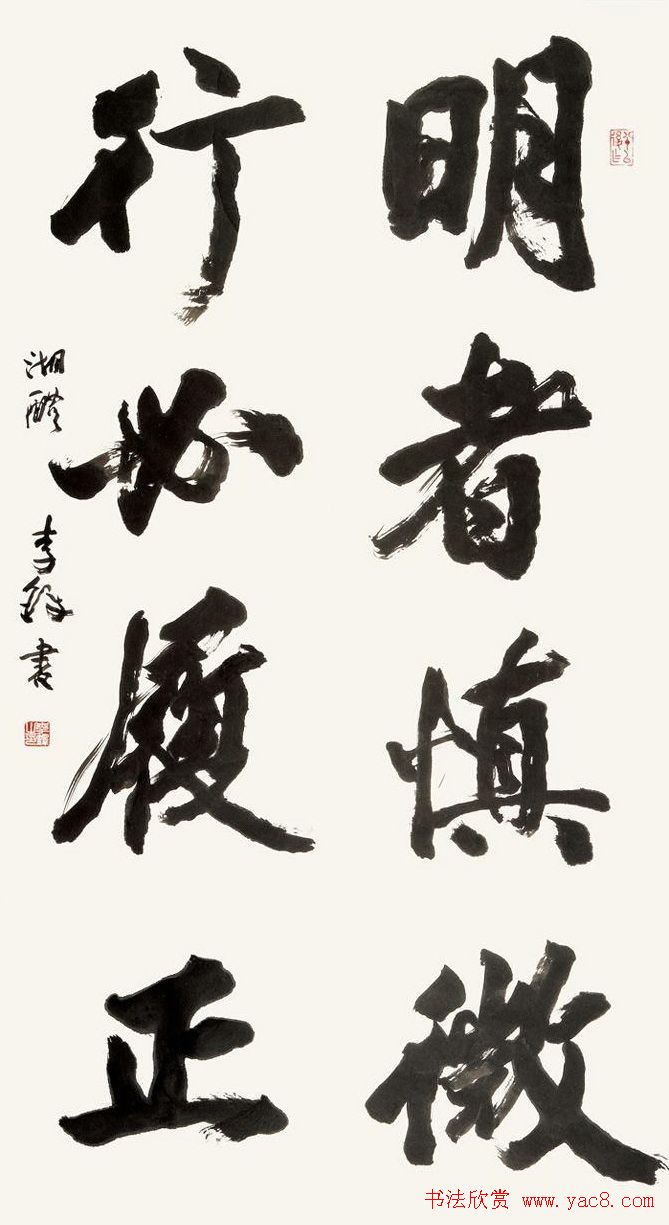 明者慎微
行必履正
湘醴
李鐸書
书法欣赏 www.yac8.com